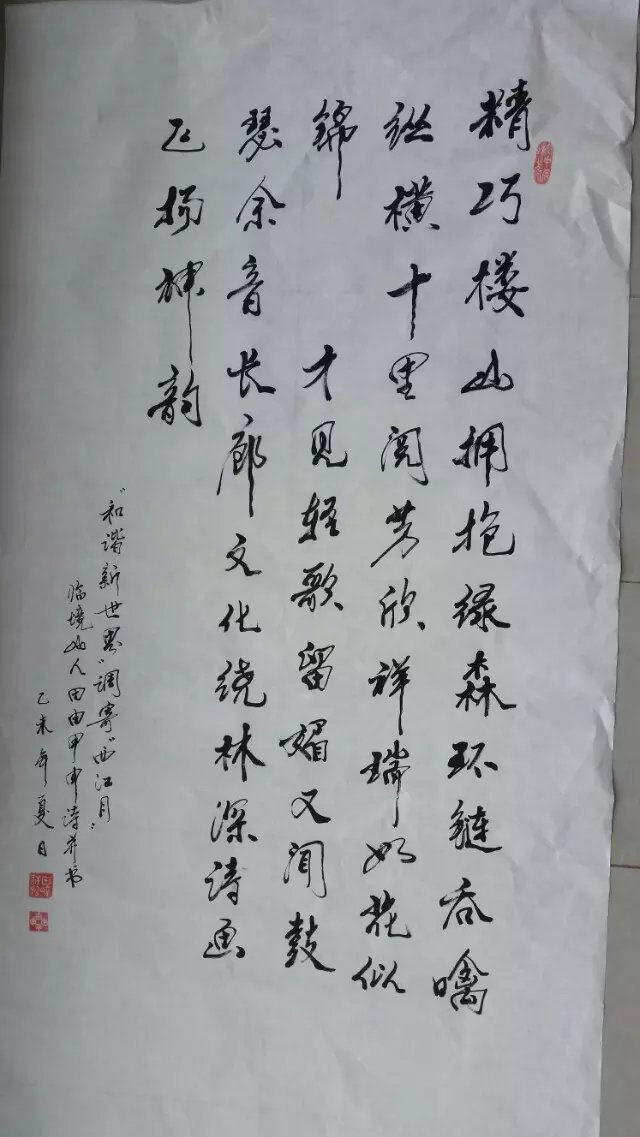 精巧楼山拥抱绿森环链吞噙
纵横十里阅芳欣祥瑞如花似
锦 才见轻歌留媚又闻鼓
瑟余音长廊文化绕林深诗画
飞扬神韵
“和谐新世界”调寄“西江月”
临境山人田由甲申诗并书
乙未年夏日